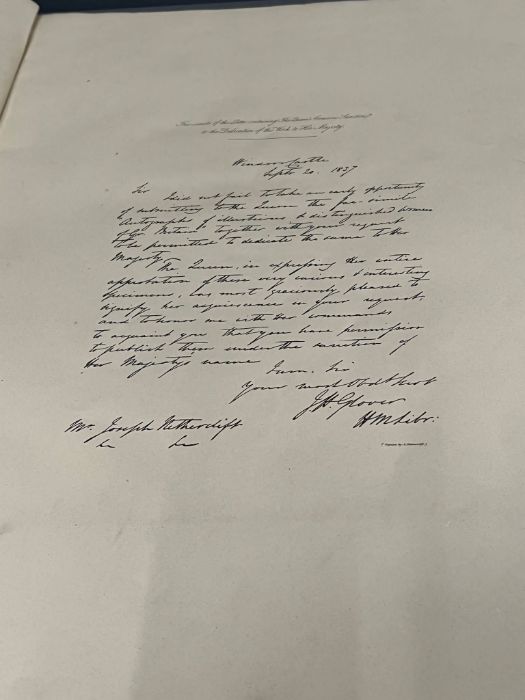 Fac-simile of the Letter containing The Queen's Gracious Sanction
to the Dedication of the Work to Her Majesty.
Windsor Castle
Septr 20. 1837
Sir I did not fail to take an early opportunity
of submitting to the Queen the fac-simile
Autographs of illustrious & distinguished women
of Gr. Britain together with your request
to be permitted to dedicate the same to Her
Majesty.
The Queen, in expressing Her entire
approbation of these very curious & interesting
specimens, was most graciously pleased to
signify her acquiescence in your request,
and to honor me with Her commands
to acquaint you that you have permission
to publish them under the sanction of
Her Majesty's name
I am, Sir
Your most Obdt Servt
J.H. Glover
H M Libr:
Mr. Joseph Netherclift
&c &c